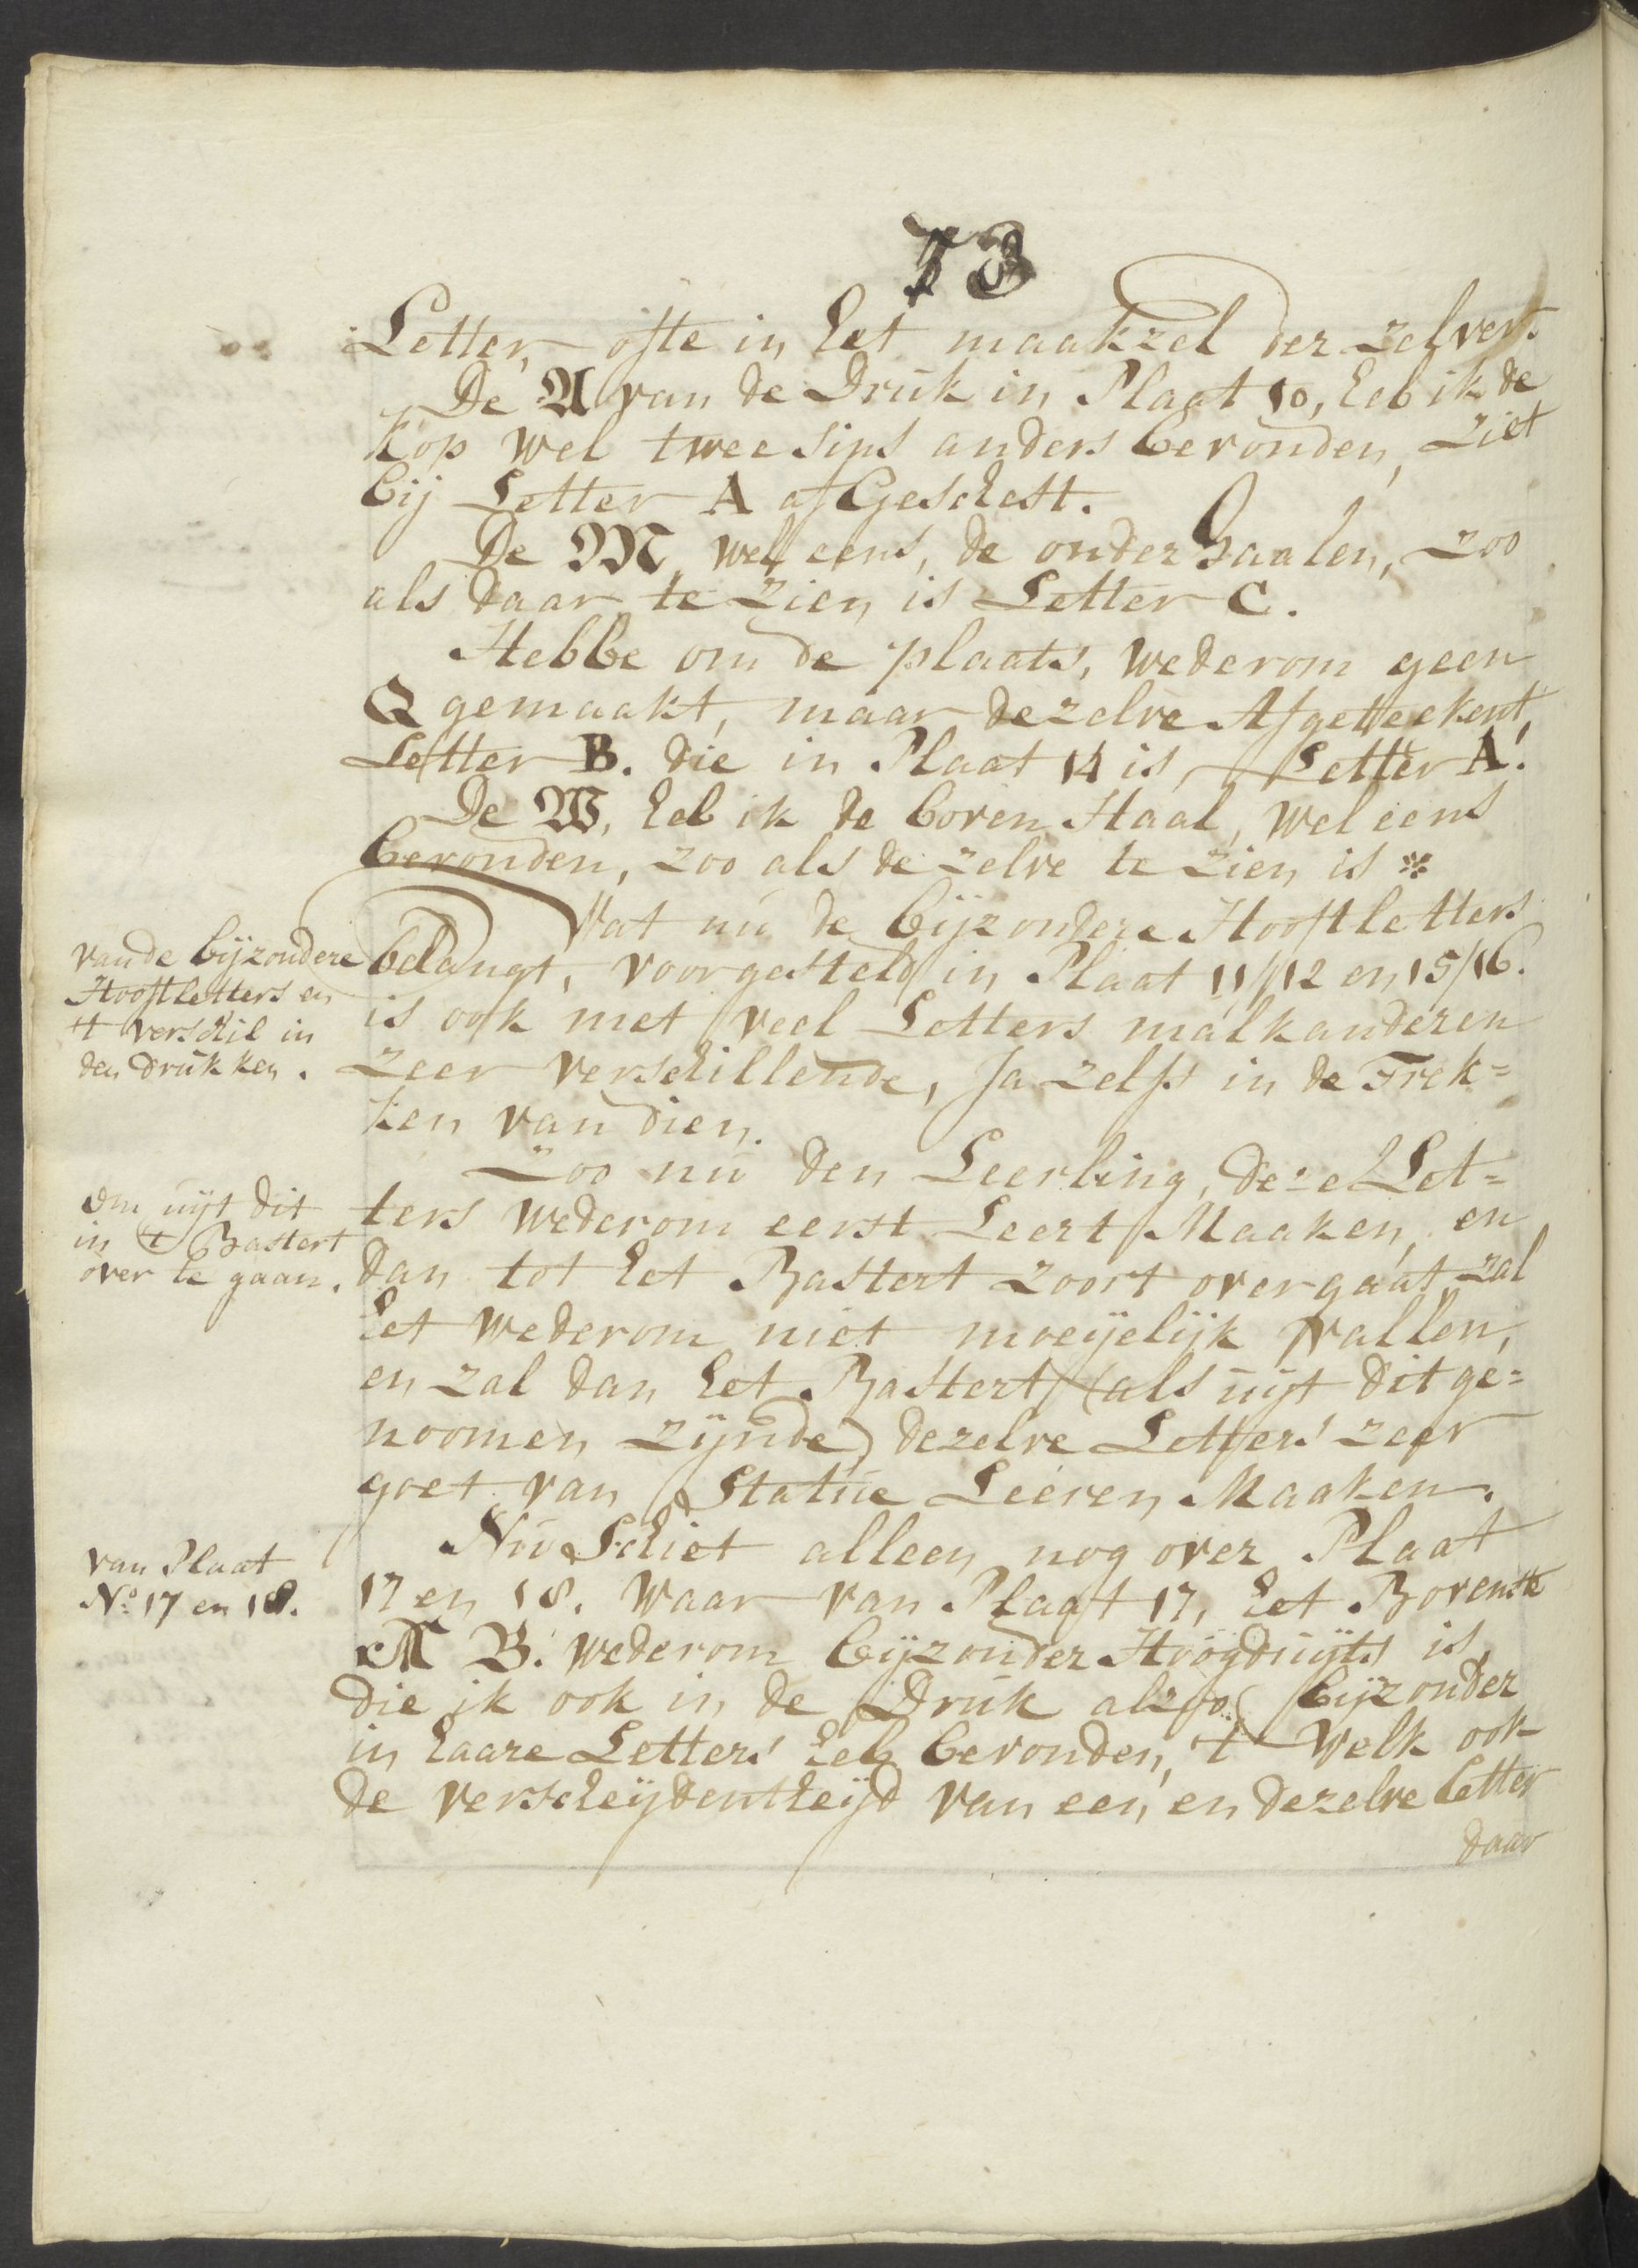 73
Letter, ofte in het maakzel der zelver.
De A van de Druk in Plaat 10, heb ik de
kop wel twee sins anders bevonden, ziet
bij Letter A afGeschest.
De M wel eens, de onder haalen, zoo
als daar te zien is Letter C.
Hebbe om de plaats, wederom geen
Q gemaakt, maar dezelve Afgeteekent,
Letter B. die in Plaat 14 is, Letter A.
De W, heb ik de boven Haal, wel eens
bevonden, zoo als de zelve te zien is *
Wat nu de bijzondere Hooftletters
belangt, voorgesteld in Plaat 11/12 en 15/16.
is ook met veel Letters malkanderen
zeer verschillende, Ja zelfs in de Trek=
ken van dien.
vande bijzondere
Hooftletters en
't verschil in
den drukken.
Zoo nu den Leerling, deze Let=
ters wederom eerst Leert Maaken, en
dan tot het Bastert zoort overgaat, zal
het wederom niet moeijelijk vallen,
en zal dan het Bastert (als uijt dit ge=
noomen zijnde) dezelve Letters zeer
goet van Statue Leeren Maaken.
om uijt dit
in 't Bastert
over te gaan.
Nu Schiet alleen nog over Plaat
17 en 18. waar van Plaat 17, het Bovenste
A B. wederom bijzonder Hoogduijts is
die ik ook in de Druk alzoo bijzonder
in haare Letters heb bevonden, 't welk ook
de verscheijdentheijd van een, en dezelve letter
daar
van Plaat
No. 17 en 18.